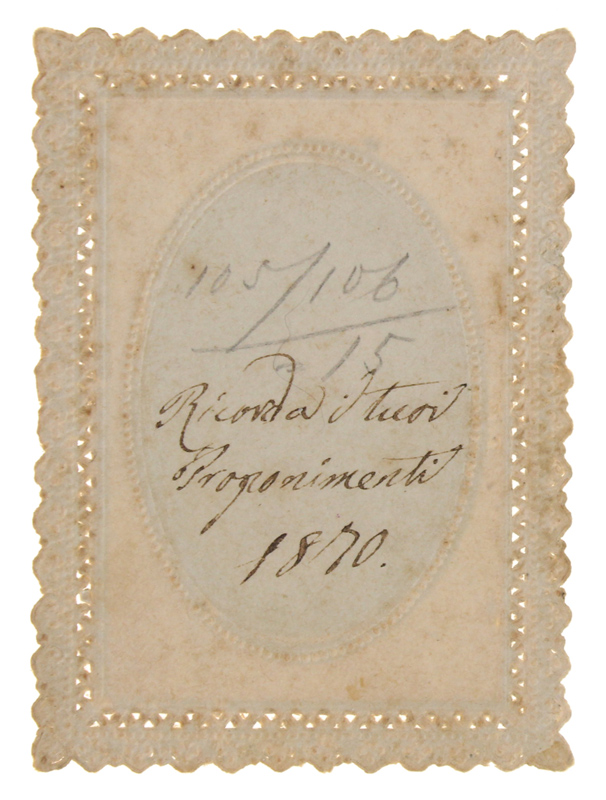 105/106
15
Ricorda i tuoi
Proponimenti
1870.